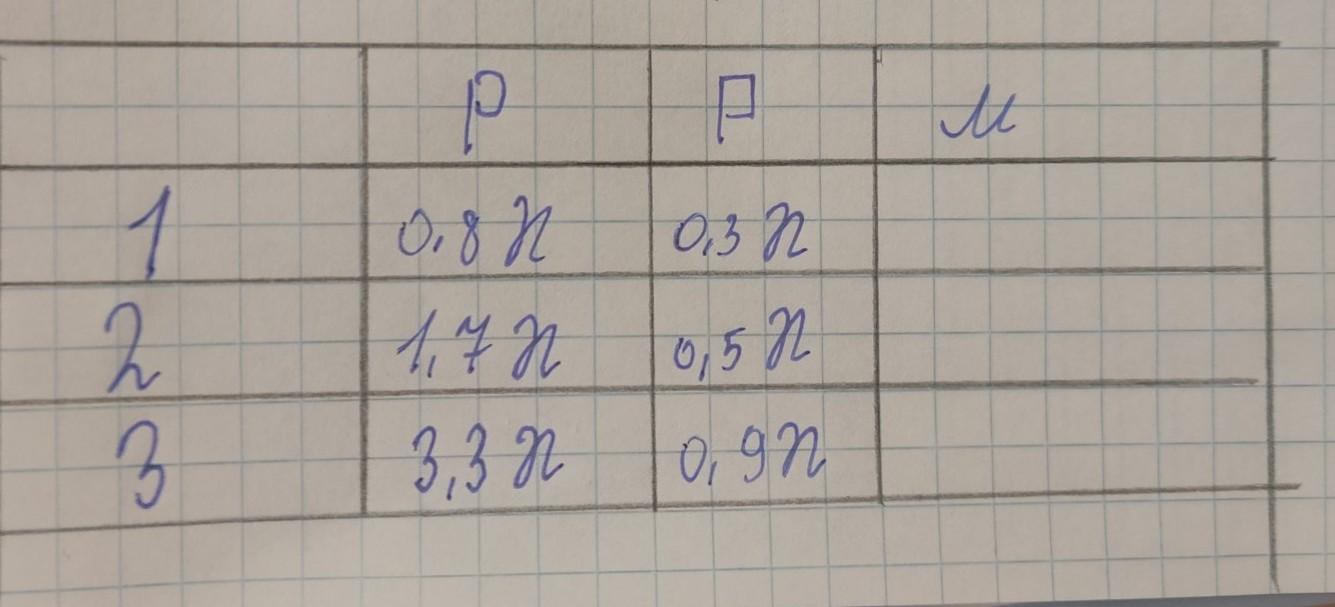 P F М
1 0,8 Н 0,3 Н
2 1,7 Н 0,5 Н
3 3,3 Н 0,9 Н